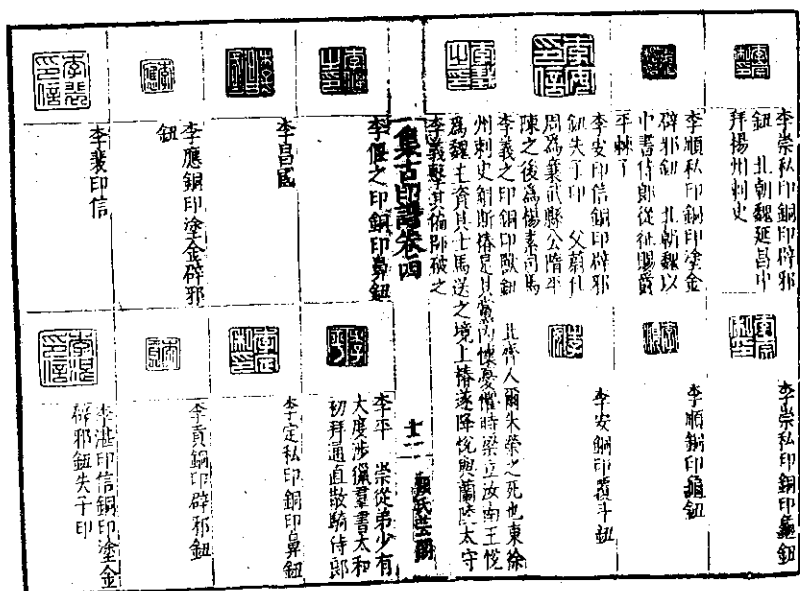 李崇私印銅印辟邪
鈕　北朝魏延昌中
拜揚州刺史
李崇私印銅印龜鈕
李順私印銅印塗金
辟邪鈕　北朝魏以
中書侍郎從征賜爵
平棘子
李順銅印龜鈕
李安印信銅印辟邪
鈕失子印　父蔚仕
周爲襄武縣公隋平
陳之後爲楊素司馬
李安銅印覆斗鈕
李義之印銅印獸鈕　北齊人爾朱榮之死也東徐
州刺史斛斯椿是其黨內懷憂懼時梁立汝南王悅
爲魏王資其士馬送之境上椿遂降悅與蘭陵太守
李義擊其偏師破之
集古印譜卷四
十二
顧氏芸閣
李偃之印銅印鼻鈕
李平　崇從弟少有
大度涉獵羣書太和
初拜通直散騎侍郎
李昌國
李定私印銅印鼻鈕
李應銅印塗金辟邪
鈕
李貢銅印辟邪鈕
李裴印信
李湛印信銅印塗金
辟邪鈕失子印